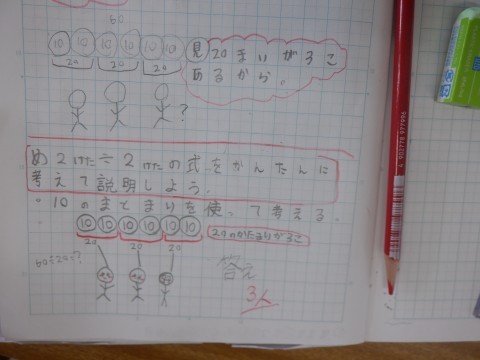 60
10 10 10 10 10 10
20 20 20
見 20まいが3こ
あるから。
?
め 2けた÷2けたの式をかんたんに
考えて説明しよう。
・10のまとまりを使って考える。
10 10 10 10 10 10
20 20 20
20のかたまりが3こ
60÷20=?
答え
3人
4 902778 677995